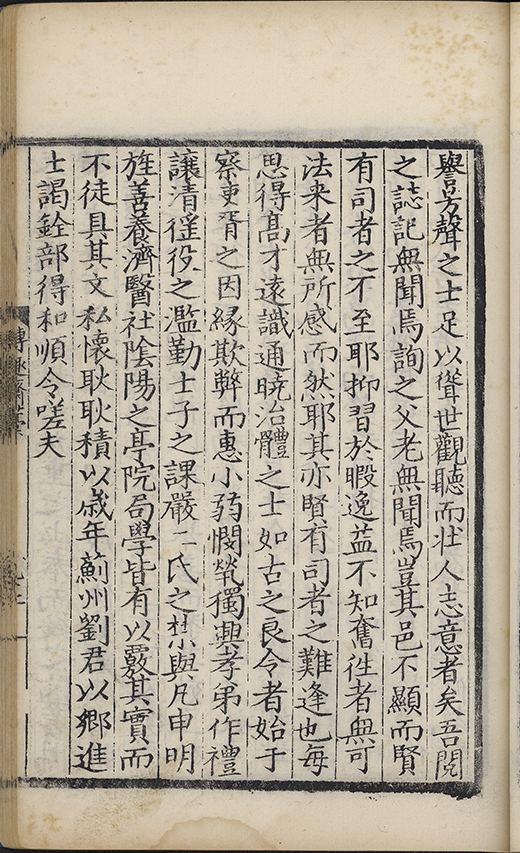 譽芳聲之士足以聳世觀聽而壯人志意者矣吾閱
之誌記無聞焉詢之父老無聞焉豈其邑不顯而賢
有司者之不至耶抑習於暇逸益不知奮徃者無可
法来者無所感而然耶其亦賢有司者之難逢也每
思得髙才遠識通曉治體之士如古之良令者始于
察吏胥之因緣欺弊而惠小弱憫煢獨興孝弟作禮
讓清徭役之濫勤士子之課嚴二氏之禁與凡申明
旌善養濟醫社陰陽之亭院局學皆有以覈其實而
不徒具其文私懷耿耿積以歲年薊州劉君以鄉進
士謁銓部得和順令嗟夫